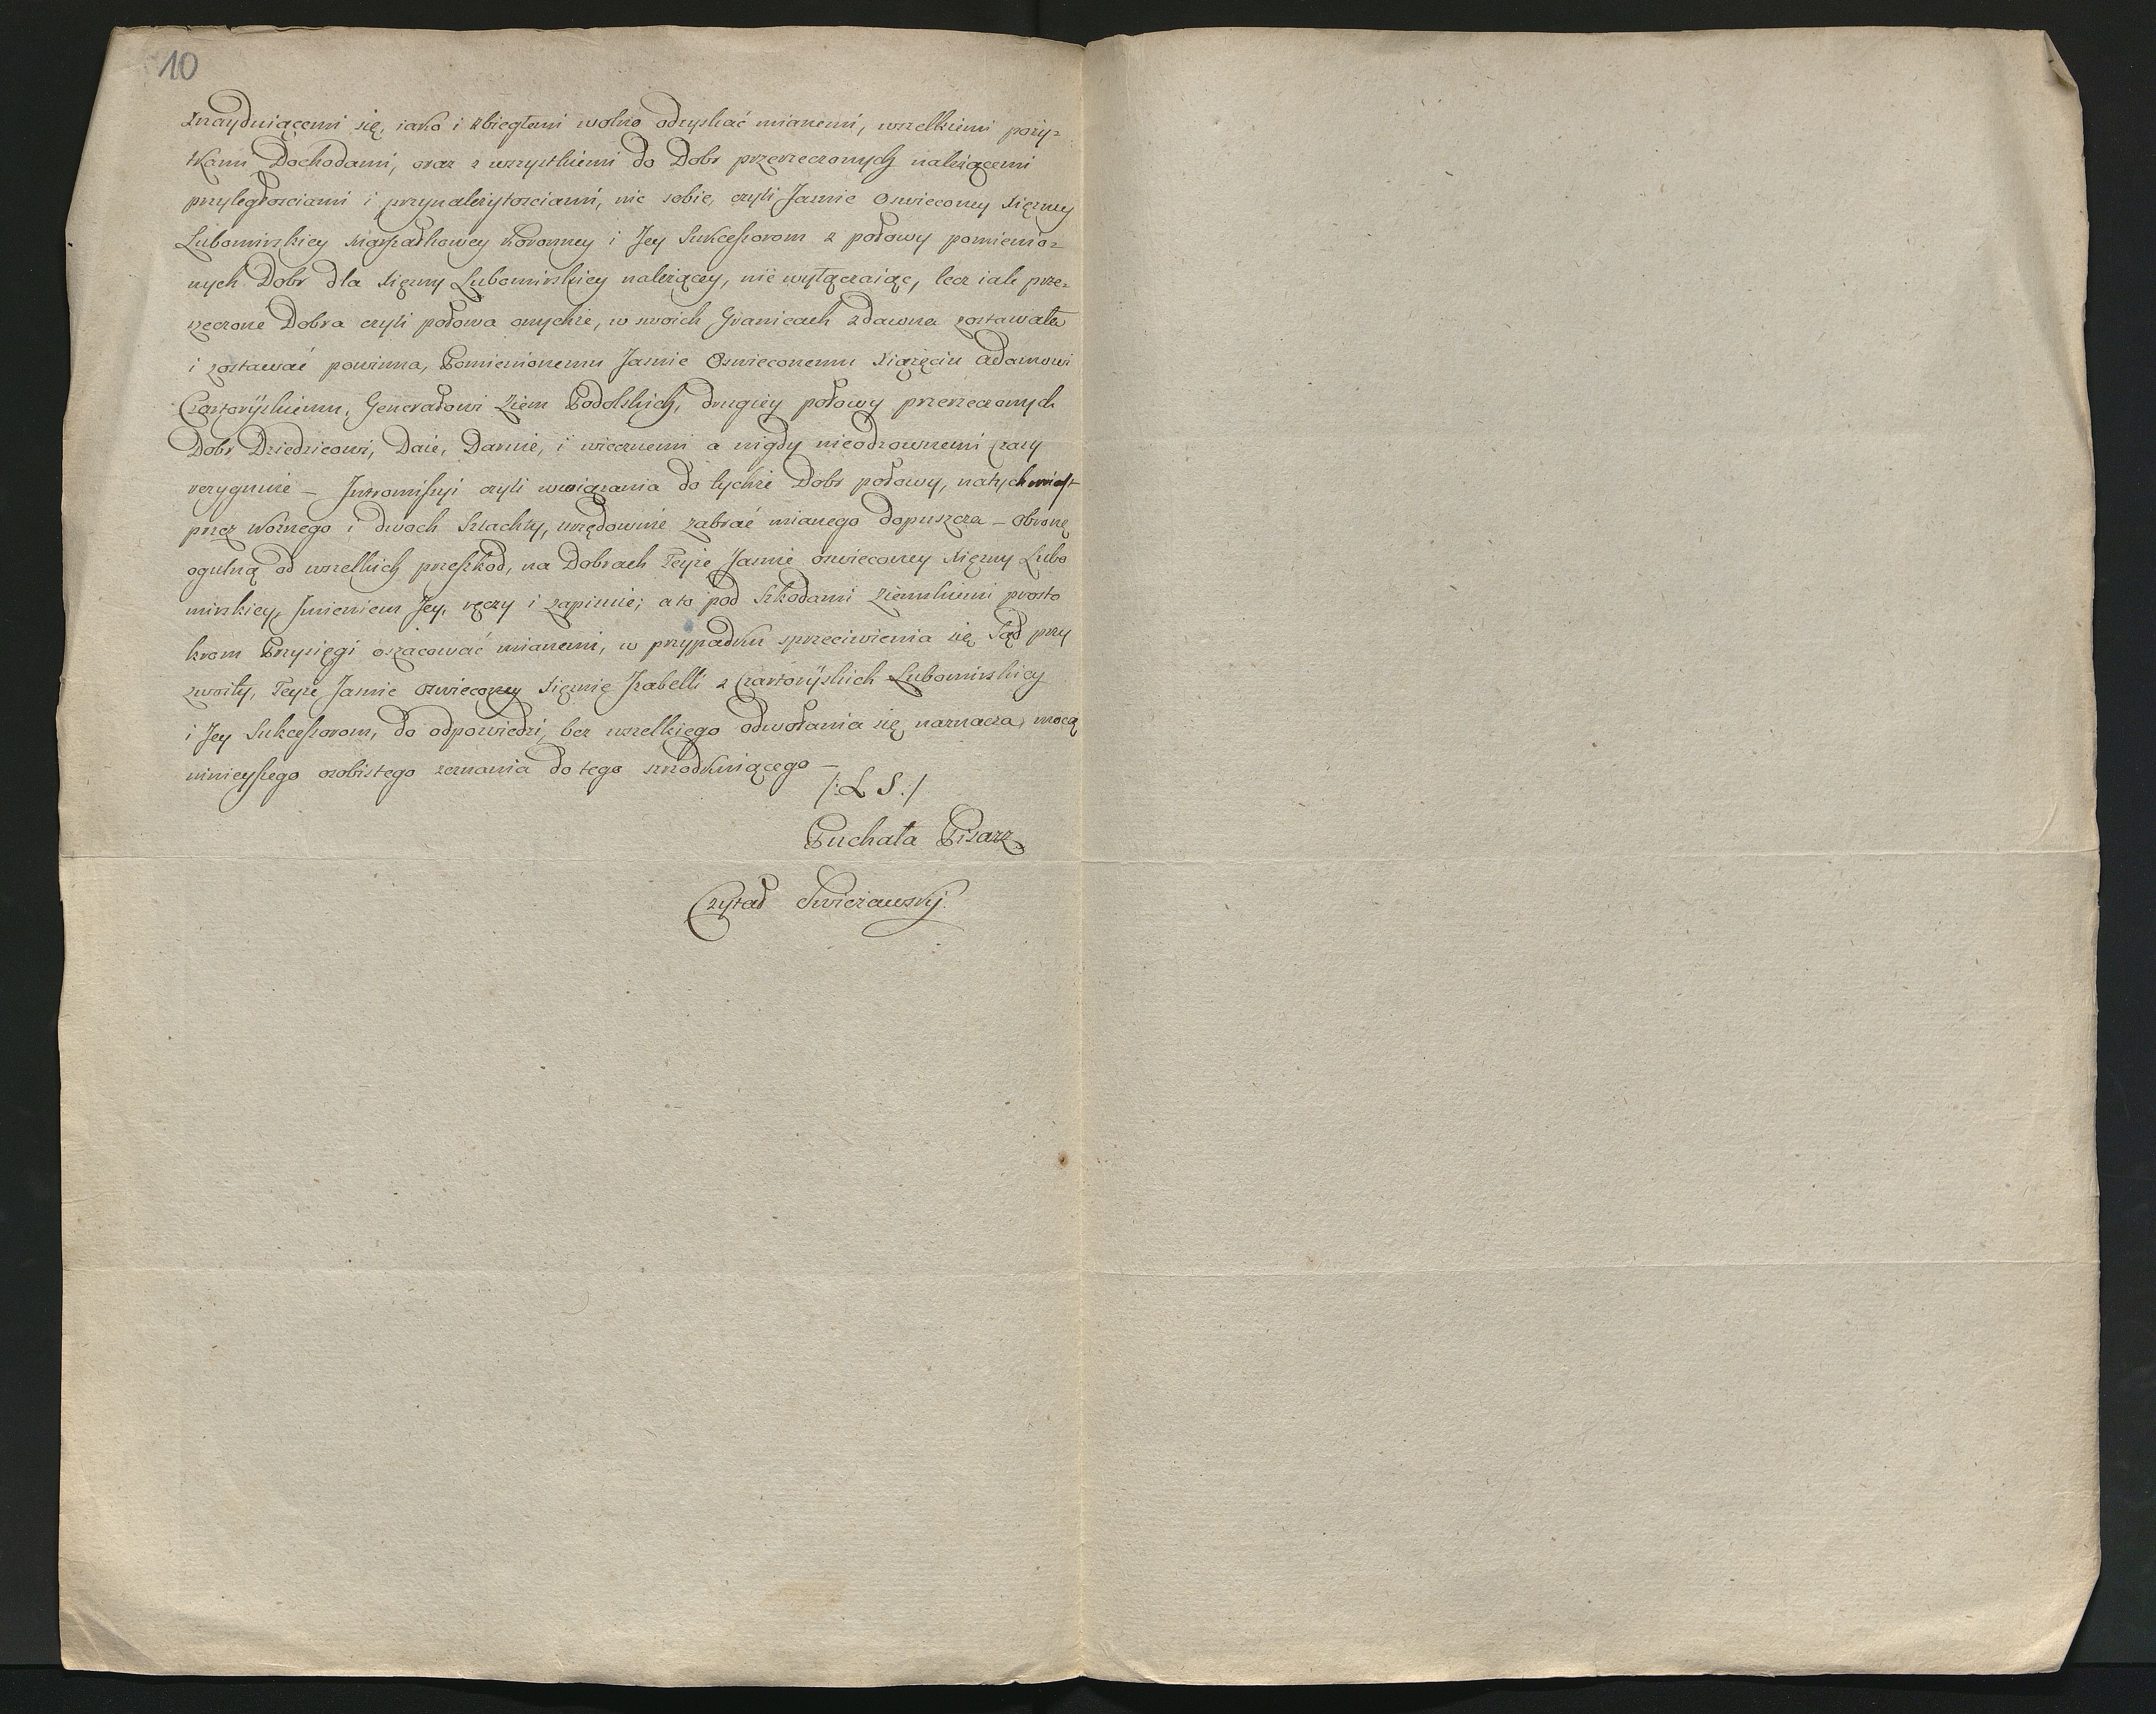 10
znayduiącemi się, iako i zbiegłemi wolno odzyskać mianemi, wszelkiemi poży=
tkami Dochodami, oraz z wszystkiemi do Dobr przerzeczonych należącemi
przyległosciami i przynależytosciami, nic sobie, czyli Jasnie Oswieconey Xiężney
Lubomirskiey Marszałkowey Koronney i Jey Sukcessorom z połowy pomienio=
nych Dobr dla Xiężny Lubomirskiey należącey, nie wyłączaiąc, lecz iak prze=
rzeczone Dobra czyli połowa onychże, w swoich Granicach zdawna zostawała
i zostawać powinna, Pomienionemu Jasnie Oswieconemu Xiążęciu Adamowi
Czartoryskiemu, Generałowi Ziem Podolskich, drugiey połowy przerzeczonych
Dobr Dziedzicowi, Daie, Daruie, i wiecznemi a nigdy nieodzownemi czasy
rezygnuie – Intromissyi czyli wwiązania do tychże Dobr połowy, natychmiast
przez Woźnego i dwoch Szlachty, urzędownie zabrać mianego dopuszcza – Obronę
ogulną od wszelkich przeszkod, na Dobrach Teyże Jasnie oswieconey Xiężny Lubo
mirskiey, Imieniem Jey, ręczy i zapisuie; a to pod Szkodami ziemskiemi prosto
krom Przysięgi oszacować mianemi, w przypadku sprzeciwienia się Sąd przy
zwoity, Teyże Jasnie Oswieconey Xiężnie Izabelli z Czartoryskich Lubomirskiey
i Jey Sukcessorom, do odpowiedzi, bez wszelkiego odwołania się naznacza, mocą
ninieyszego osobistego zeznania do tego srzodkuiącego –
/: L S :/
Puchała Pisarz
Czytał Swieżawsky.